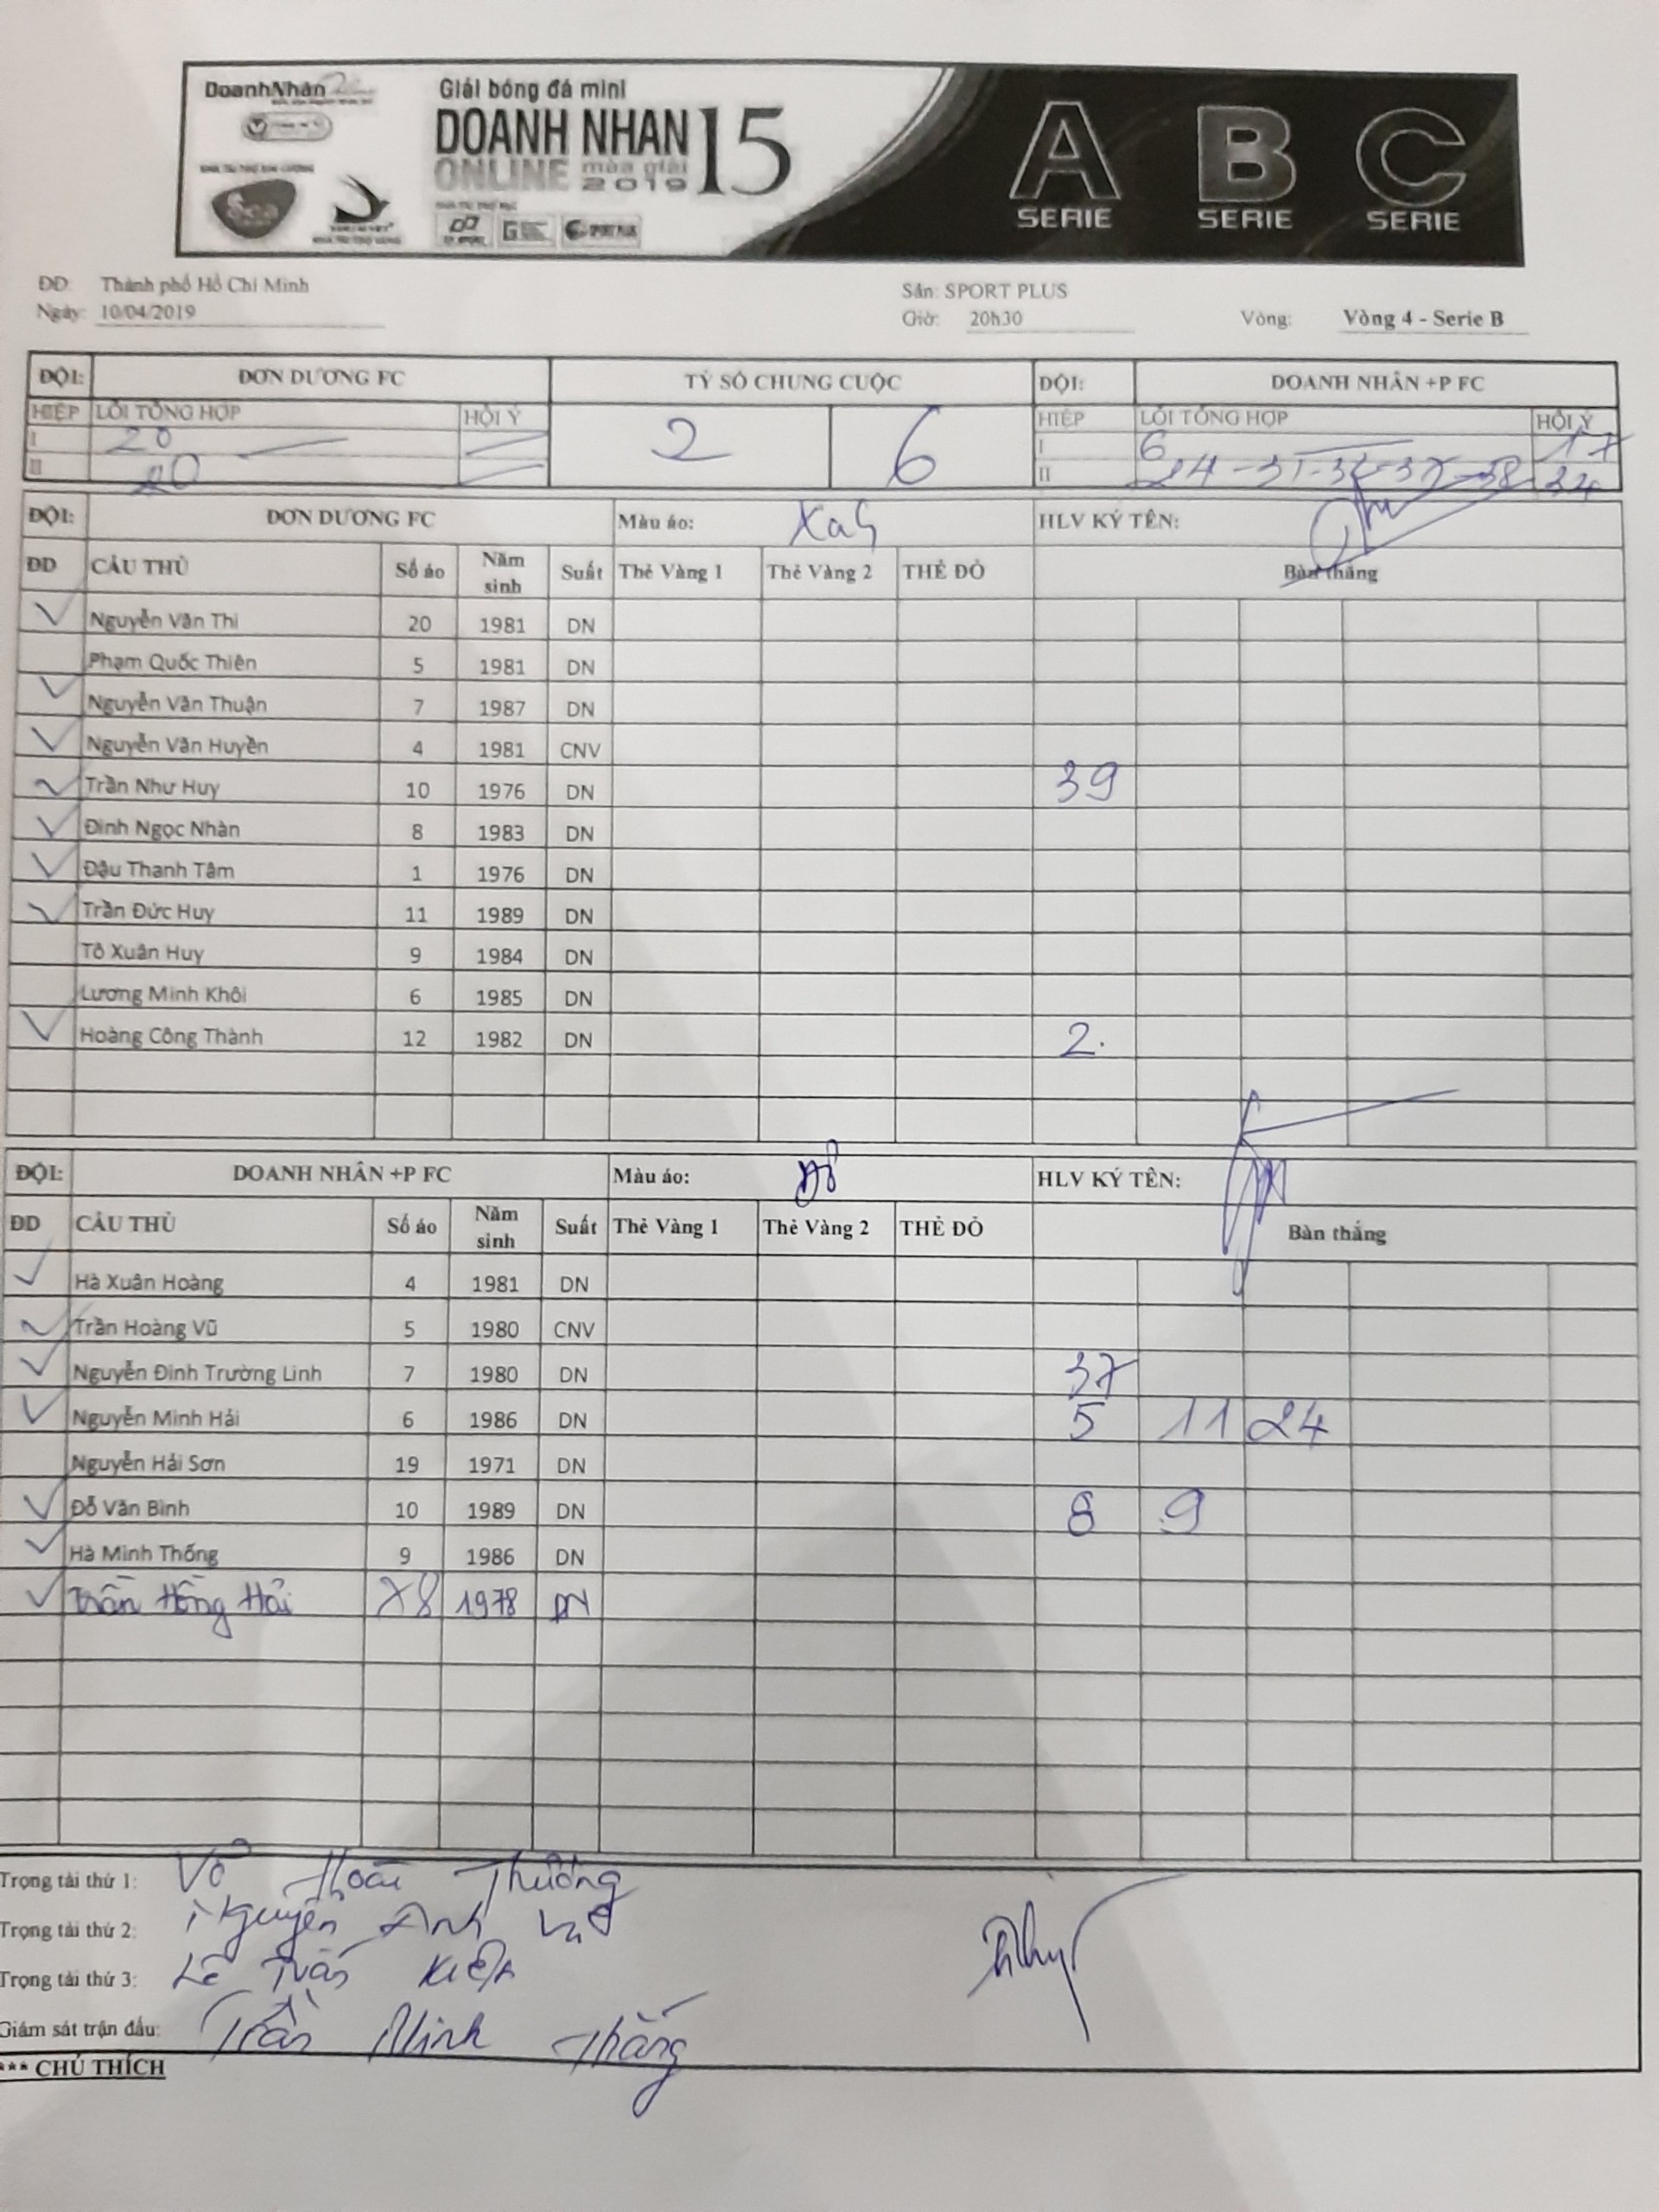 DoanhNhân
Giải bóng đá mini
DOANH NHAN 15
ONLINE mùa giải
2019
A B C
SERIE SERIE SERIE
ĐĐ: Thành phố Hồ Chí Minh Sân: SPORT PLUS
Ngày: 10/04/2019 Giờ: 20h30 Vòng: Vòng 4 - Serie B
ĐỘI: ĐƠN DƯƠNG FC TỶ SỐ CHUNG CUỘC ĐỘI: DOANH NHÂN +P FC
HIỆP LỖI TỔNG HỢP HỘI Ý 2 6 HIỆP LỖI TỔNG HỢP HỘI Ý
I 20 I 6 17
II 20 II 24 - 31 - 32 - 37 - 38 34
ĐỘI: ĐƠN DƯƠNG FC Màu áo: HLV KÝ TÊN:
ĐD CẦU THỦ Số áo Năm sinh Suất Thẻ Vàng 1 Thẻ Vàng 2 THẺ ĐỎ Bàn thắng
Nguyễn Văn Thi 20 1981 DN
Phạm Quốc Thiên 5 1981 DN
Nguyễn Văn Thuận 7 1987 DN
Nguyễn Văn Huyền 4 1981 CNV
Trần Như Huy 10 1976 DN 39
Đinh Ngọc Nhàn 8 1983 DN
Đậu Thanh Tâm 1 1976 DN
Trần Đức Huy 11 1989 DN
Tô Xuân Huy 9 1984 DN
Lương Minh Khôi 6 1985 DN
Hoàng Công Thành 12 1982 DN 2.
ĐỘI: DOANH NHÂN +P FC Màu áo: Đỏ HLV KÝ TÊN:
ĐD CẦU THỦ Số áo Năm sinh Suất Thẻ Vàng 1 Thẻ Vàng 2 THẺ ĐỎ Bàn thắng
Hà Xuân Hoàng 4 1981 DN
Trần Hoàng Vũ 5 1980 CNV
Nguyễn Đình Trường Linh 7 1980 DN 37
Nguyễn Minh Hải 6 1986 DN 5 11 24
Nguyễn Hải Sơn 19 1971 DN
Đỗ Văn Bình 10 1989 DN 8 9
Hà Minh Thống 9 1986 DN
Trần Hồng Hải 1978 DN
Trọng tài thứ 1: Võ Hoài Thương
Trọng tài thứ 2: Nguyễn Anh Vũ
Trọng tài thứ 3: Lê Tuấn Kiệt
Giám sát trận đấu: Trần Minh Thắng
*** CHÚ THÍCH